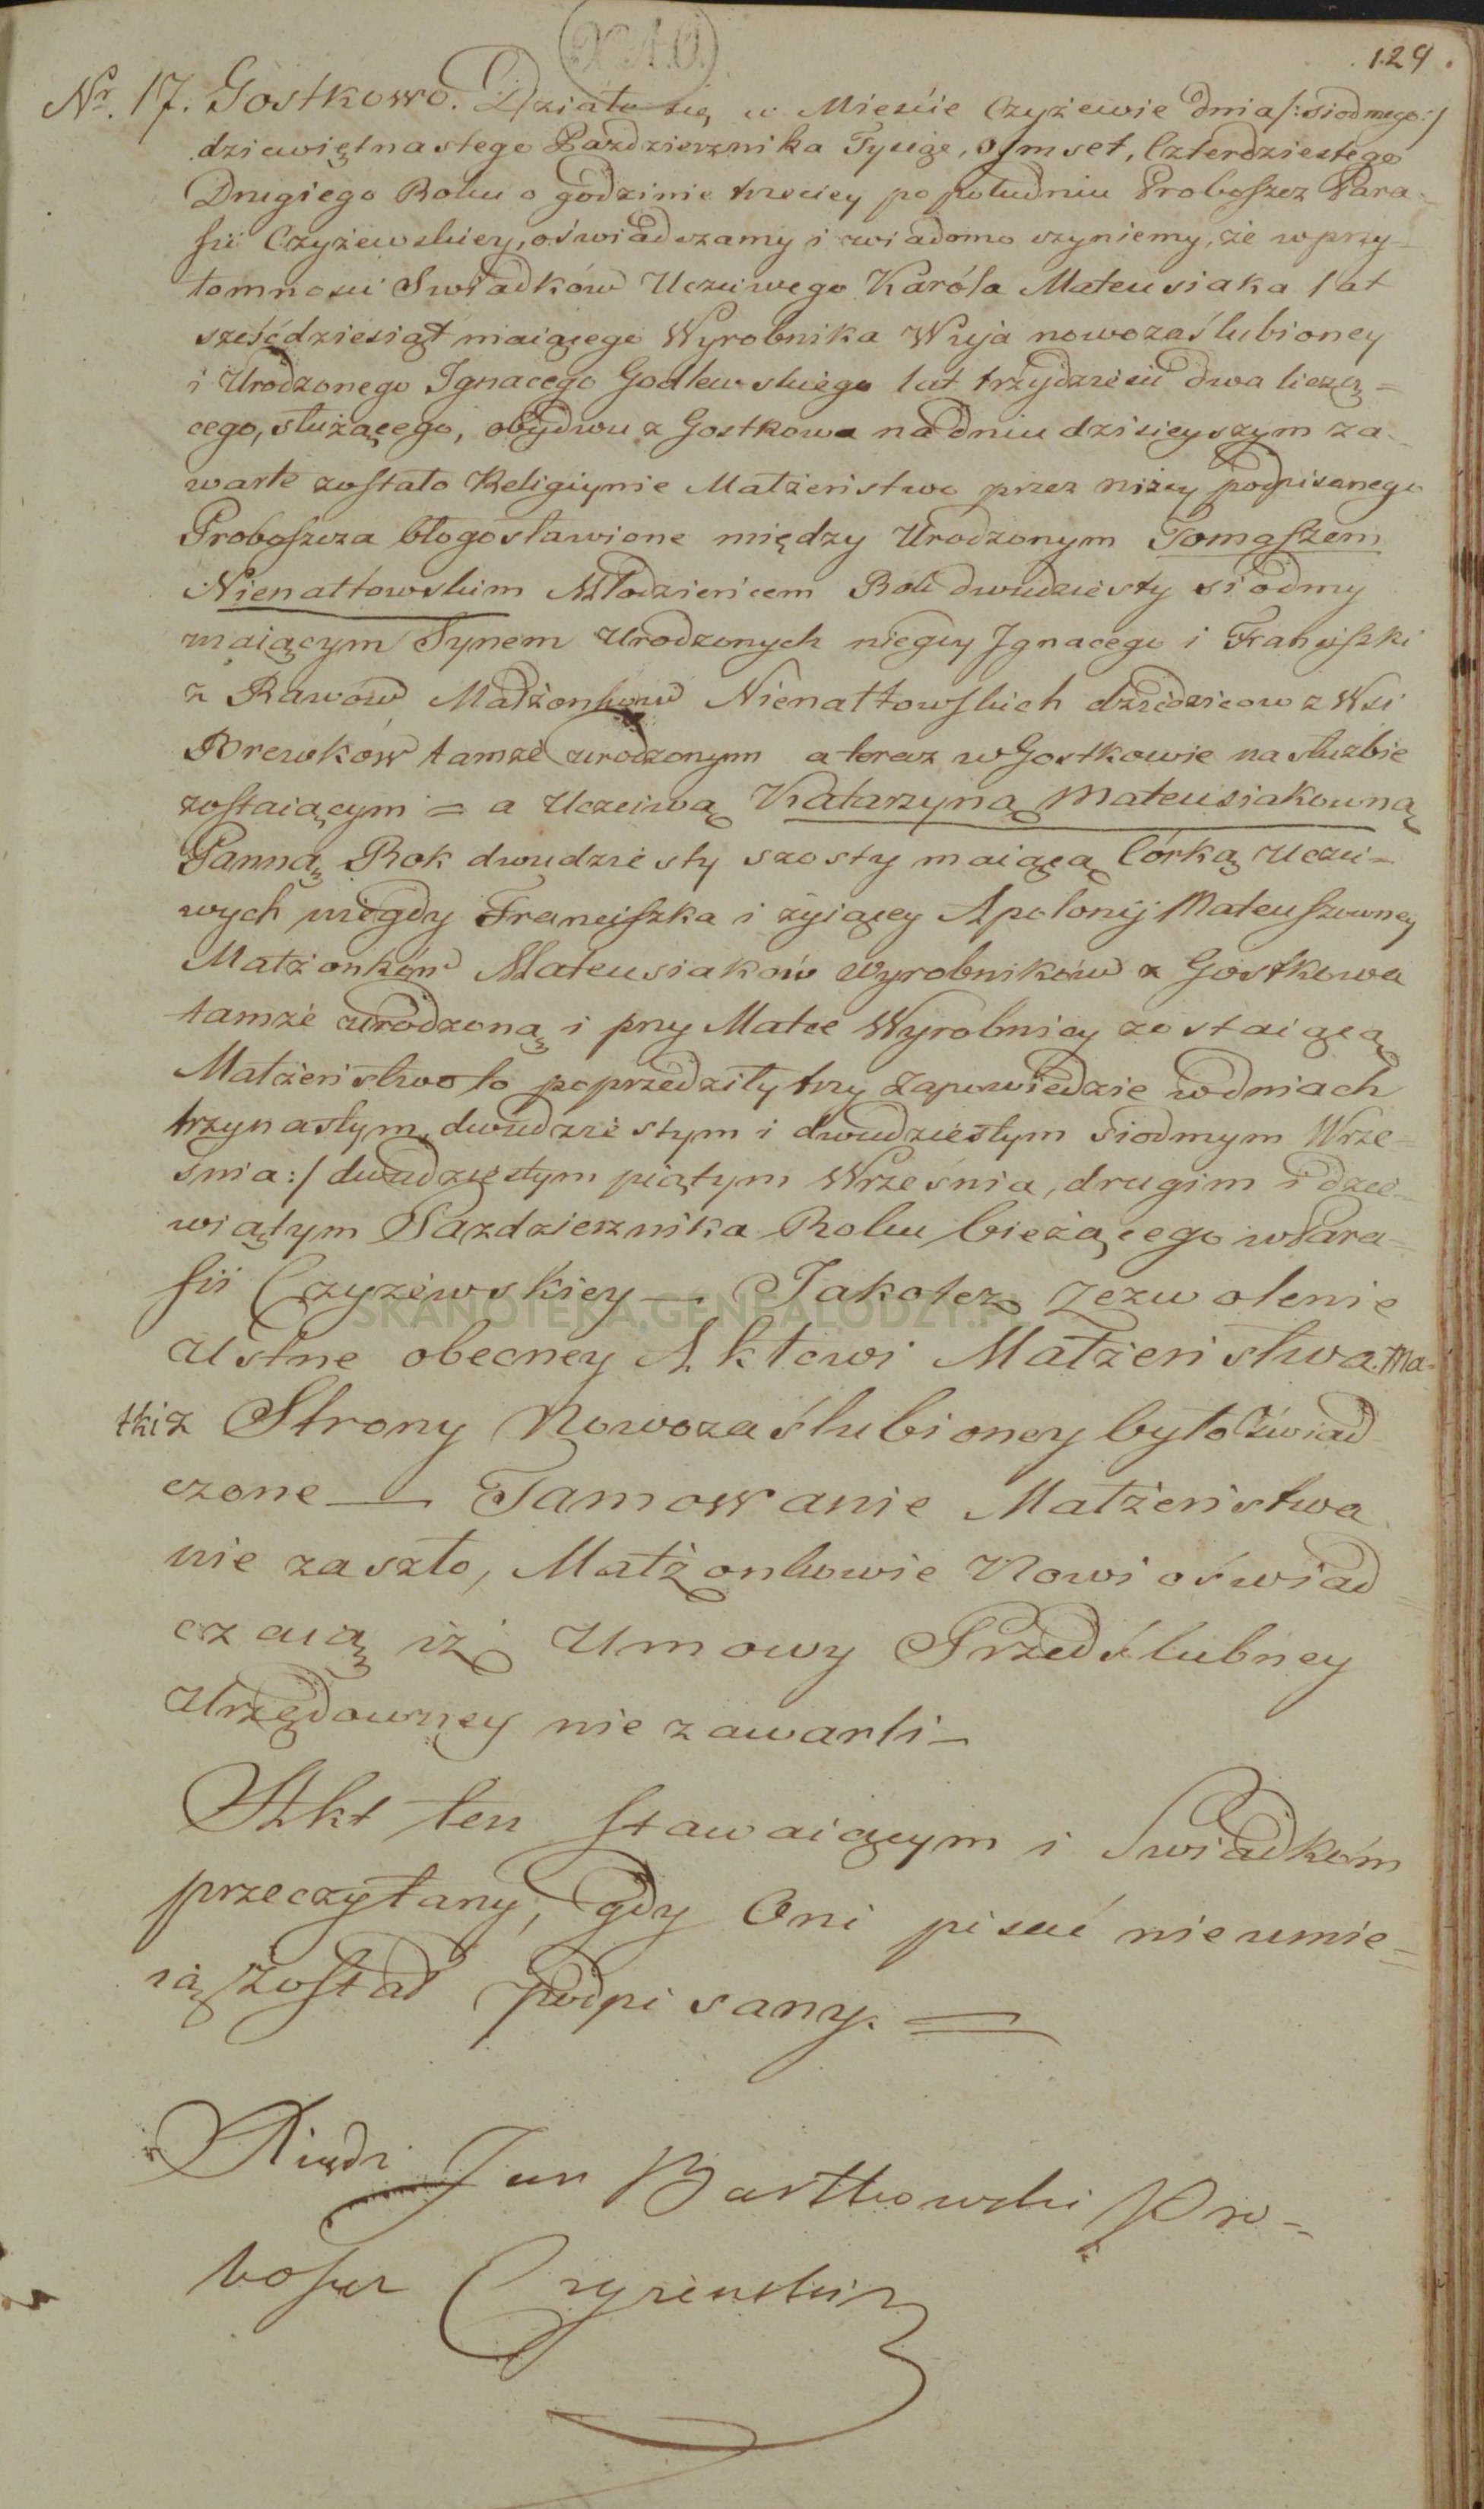 129.
Nr. 17. Gostkowo. Działo się w Mieście Czyżewie dnia /:siodmego:/
dziewiętnastego Pazdziernika Tysiąc, osmset, Czterdziestego
Drugiego Roku o godzinie trzeciey po południu Proboszcz Para-
fii Czyżewskiey, oświadczamy i wiadomo czyniemy, że w przy-
tomnosci Swiadków Uczciwego Karóla Mateusiaka lat
sześćdziesiąt maiącego Wyrobnika Wuja nowozaślubioney
i Urodzonego Ignacego Godlewskiego lat trzydzieści dwa liczą-
cego, służącego, obydwu z Gostkowa na dniu dzisieyszym za-
warte zostało Religiynie Małżeństwo przez niżey podpisanego
Proboszcza błogosławione między Urodzonym Tomaszem
Nienałtowskim Młodzieńcem Rok dwudziesty siodmy
maiącym Synem Urodzonych niegdy Ignacego i Franciszki
z Rawów Małżonków Nienałtowskich dziedziców z Wsi
Brewków tamże urodzonym a teraz w Gostkowie na służbie
zostaiącym = a Uczciwą Katarzyną Mateusiakowną
Panną Rok dwudziesty szosty maiącą Córką Uczci-
wych niegdy Franciszka i żyiącey Apolonij Mateuszowney
Małżonków Mateusiaków Wyrobników z Gostkowa
tamże urodzoną i przy Matce Wyrobnicy zostaiącą
Małżeństwo to poprzedziły trzy Zapowiedzie w dniach
trzynastym, dwudziestym i dwudziestym siodmym Wrze-
śnia:/ dwudziestym piątym Września, drugim i dzie-
wiątym Pazdziernika Roku bieżącego w Para-
fii Czyżewskiey — Jakoteż Zezwolenie
SKANOTEKA.GENEALODZY.PL
ustne obecney Aktowi Małżeństwa Ma-
tki z Strony Nowozaślubioney było Oświad
czone — Tamowanie Małżeństwa
nie zaszło, Małżonkowie Nowi oświad
czaią iż Umowy Przedślubney
Urzędowney nie zawarli —
Akt ten stawaiącym i Swiadkom
przeczytany, gdy Oni pisać nie umie-
ią został podpisany. =
Xiądz Jan Bartkowski Pro-
boszcz Czyżewski